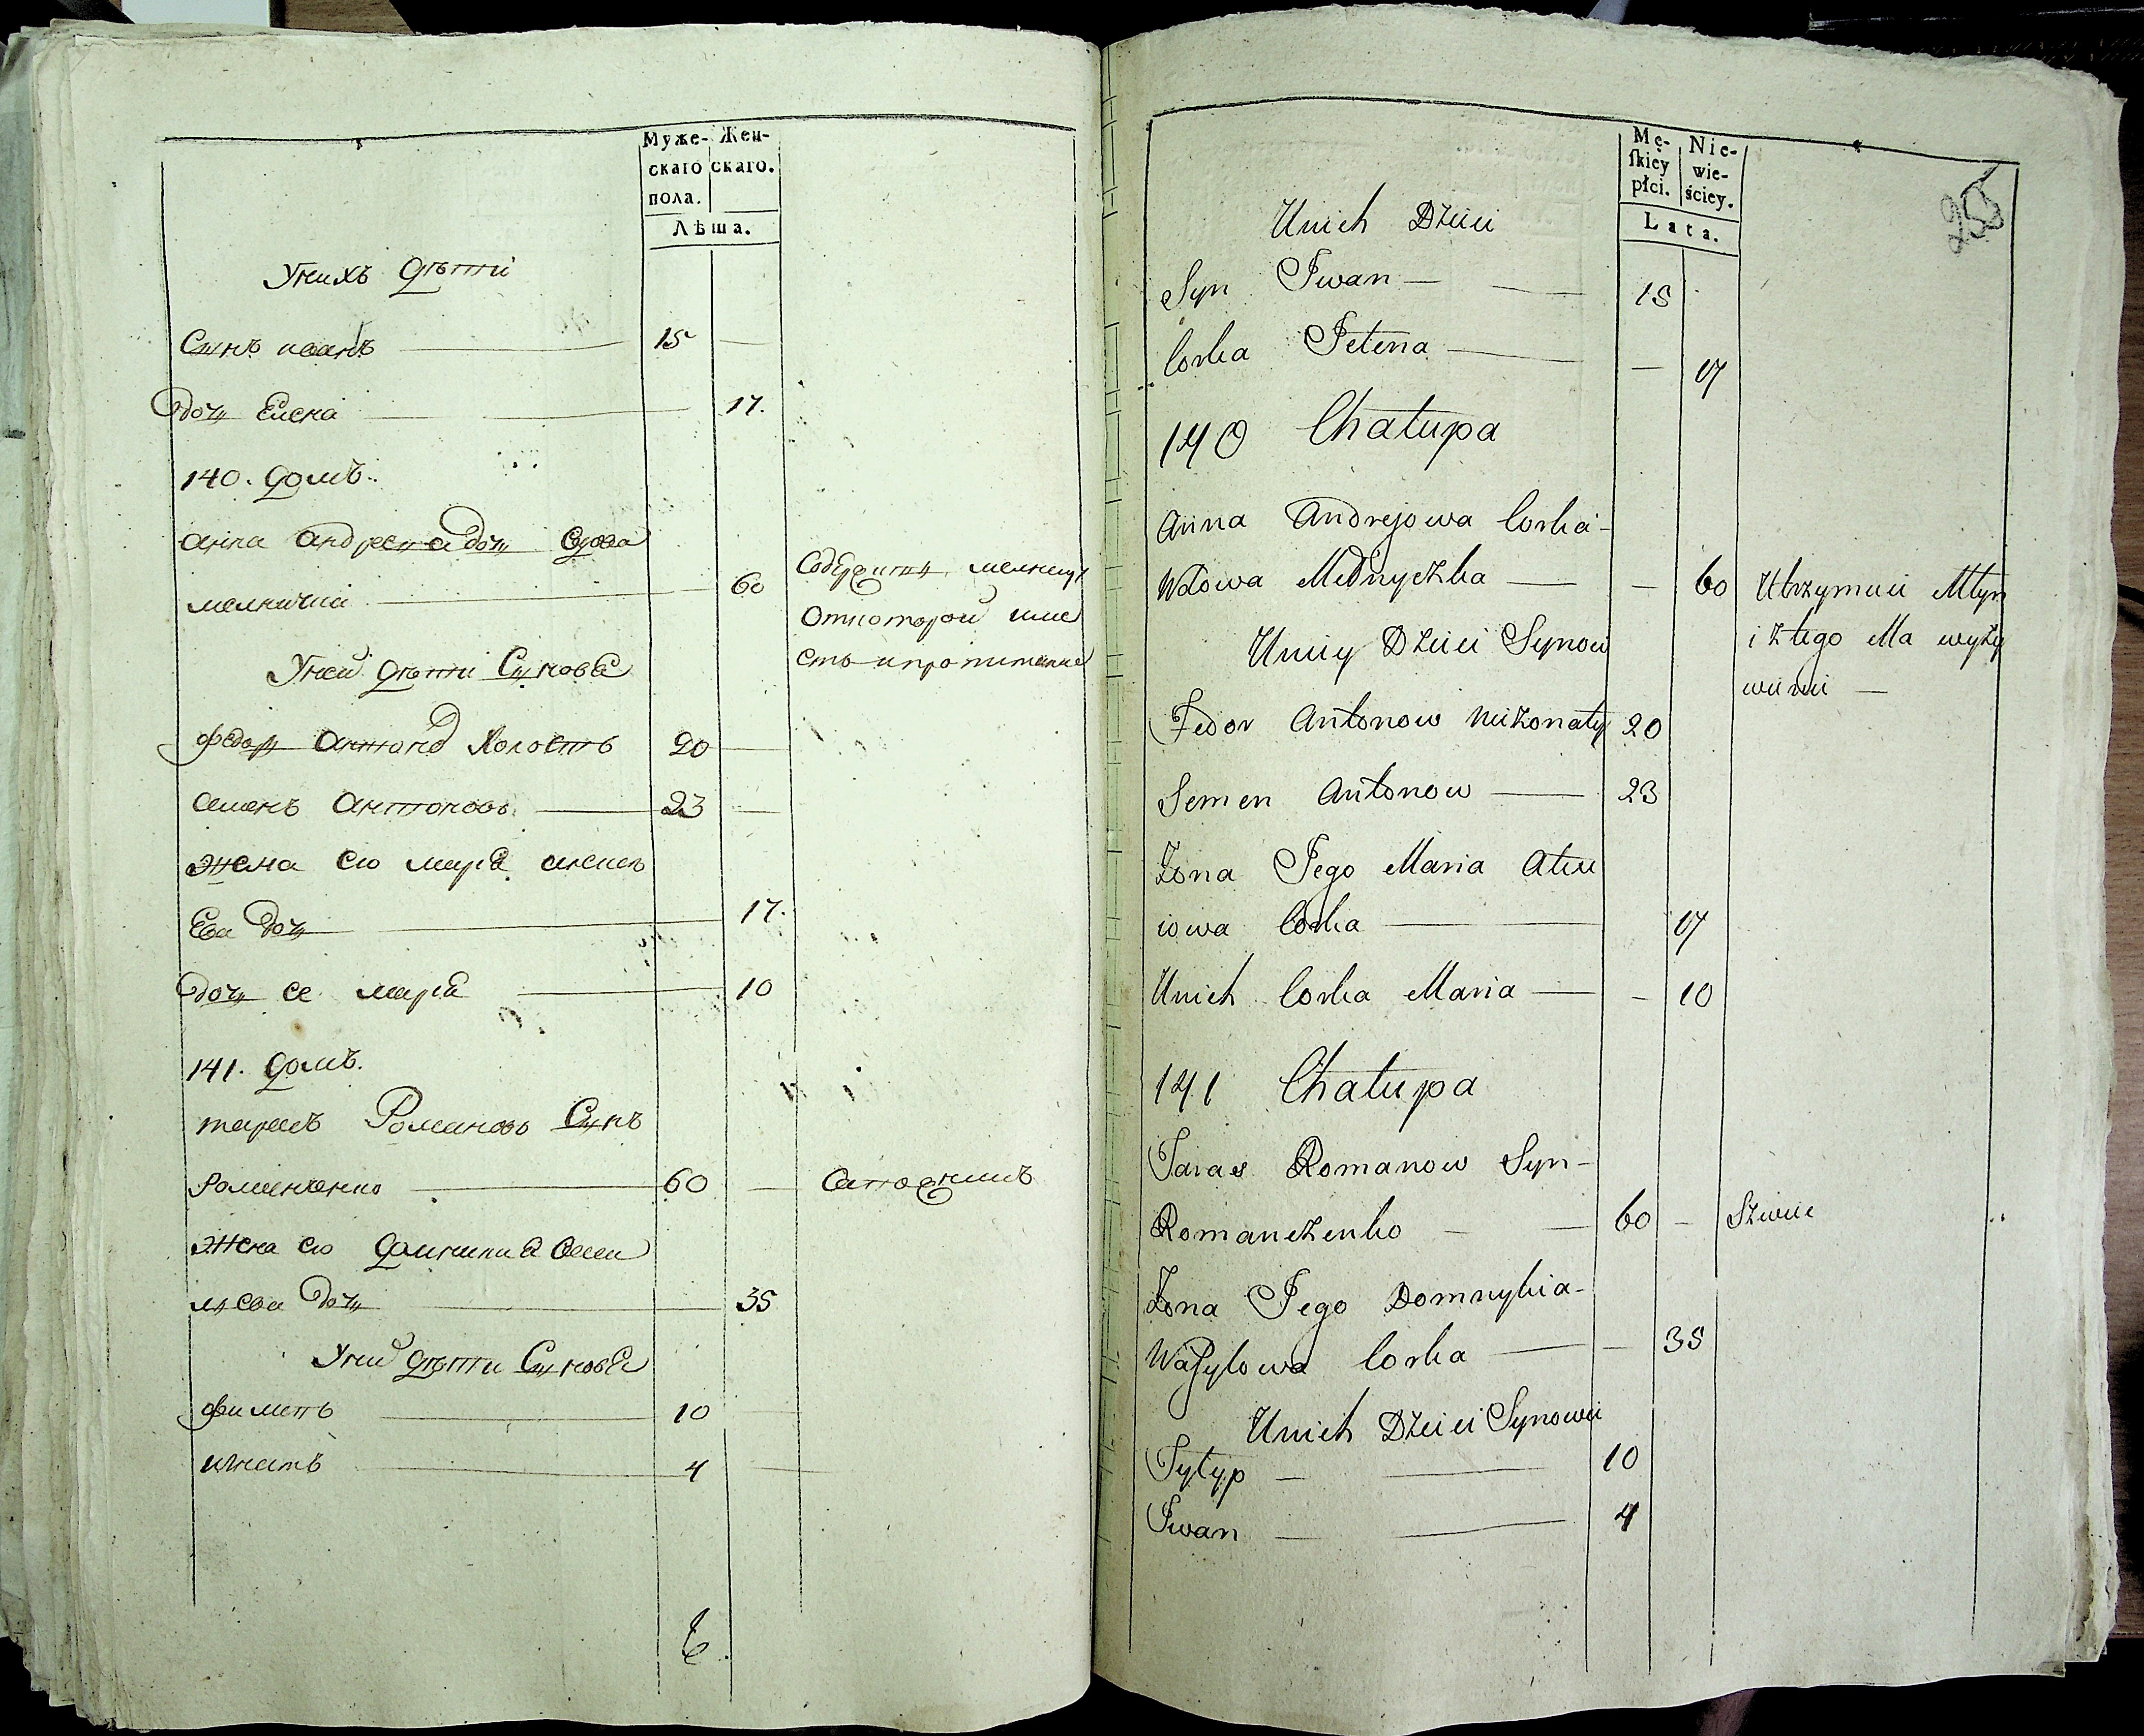 Муже-
скаго
пола.
Жен-
скаго.
Лѣта.
Унихъ дѣти
Сынъ иванъ 15
дочь Елена 17.
140. домъ.
анна андреева дочь вдова
мелничка 60 Содержитъ мелницу
Откоторой име
етъ ипропитание
Уней дѣти Сыновья
федоръ антоновъ холостъ 20
семенъ антоновъ 23
жена его марія алексѣ
Ева дочь 17.
дочь ее марія 10
141. домъ.
тарасъ Романовъ Сынъ
Романченко 60 Сапожникъ
жена его домникия васи
льева дочь 35
Унихъ дѣти Сыновья
филипъ 10
игнатъ 4
6
Mę-
ſkiey
płci.
Nie-
wie-
ściey.
Lata.
255
Unich Dzieci
Syn Iwan 15
Corka Jelena 17
140 Chałupa
Anna Andrejowa Corka
Wdowa Melnyczka 60 Utrzymuie Młyn
i ztego Ma wyży
wienie
Uniey Dzieci Synowie
Fedor Antonow nieżonaty 20
Semen Antonow 23
Żona Jego Maria Alexi
iowa Corka 17
Unich Corka Maria 10
141 Chałupa
Taras Romanow Syn
Romanczenko 60 Szwiec
Żona Jego Domnykia
Waſylowa Corka 35
Unich Dzieci Synowie
Fylyp 10
Iwan 4